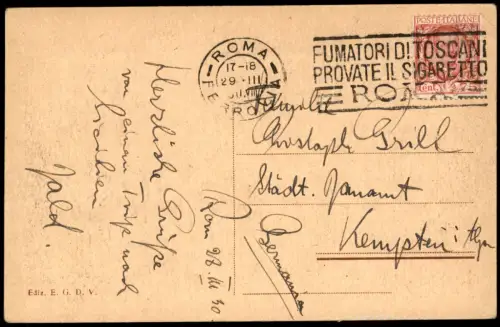 Herzliche Grüße
von einem Trip nach
Sizilien
Rom 28. III 30.
Edis. E. G. D. V.
ROMA
17-18
29 · III
FERROVIA
FUMATORI DI TOSCANI
PROVATE IL SIGARETTO
ROMA
POSTE ITALIANE
Familie
Christoph Grill
Städt. Bauamt
Kempten i. Allgäu
Germania